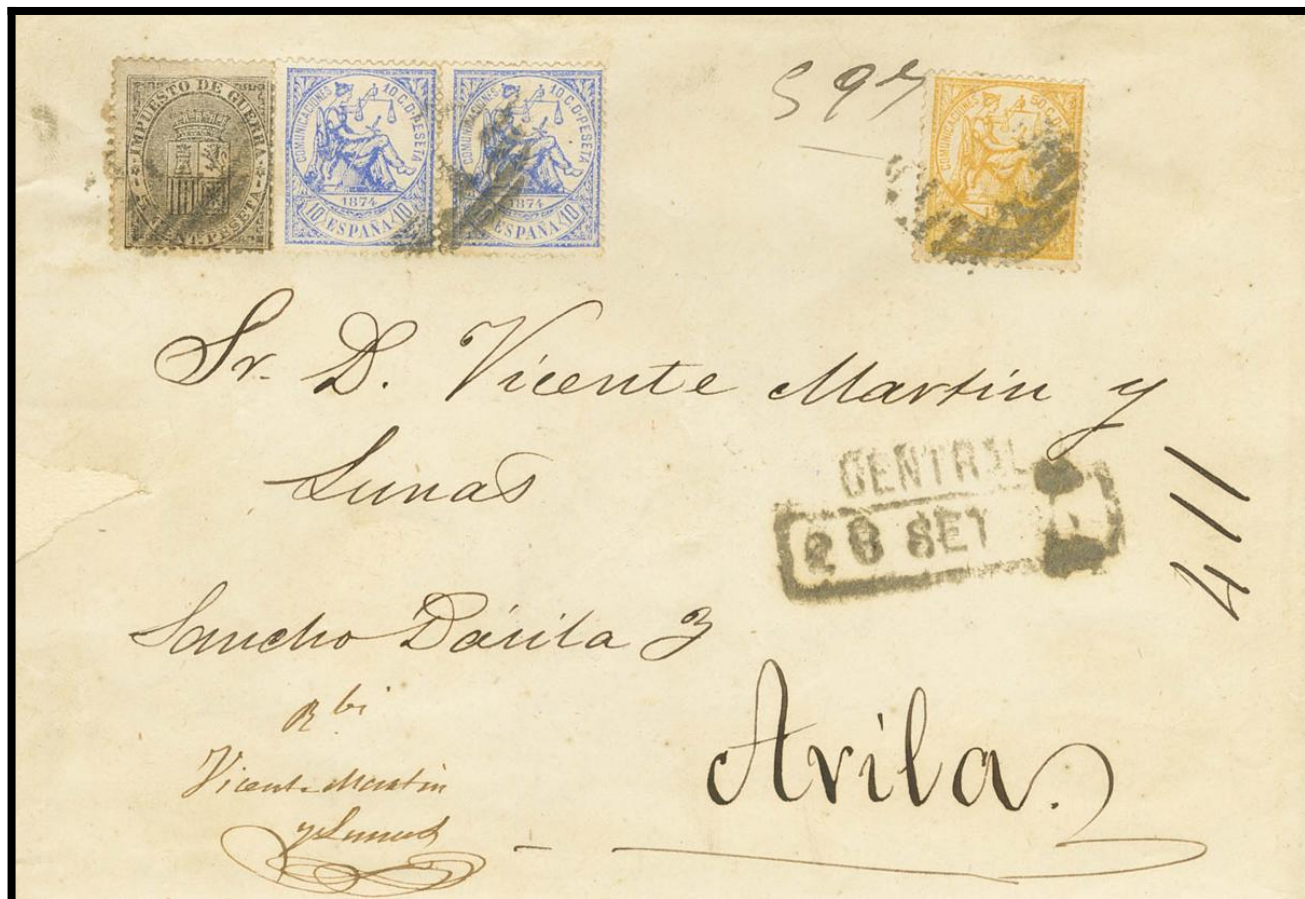 IMPUESTO DE GUERRA
5 CENT. PESETA
COMUNICACIONES 10 C. D PESETA
1874
10 ESPAÑA 10
COMUNICACIONES 10 C. D PESETA
1874
ESPAÑA 10
597
COMUNICACIONES 50
Sr. D. Vicente Martin y
Lunas
CENTRAL
28 SET
411
Sancho Dávila 3
Rbi
Vicente Martin
y Lunas
Avila.